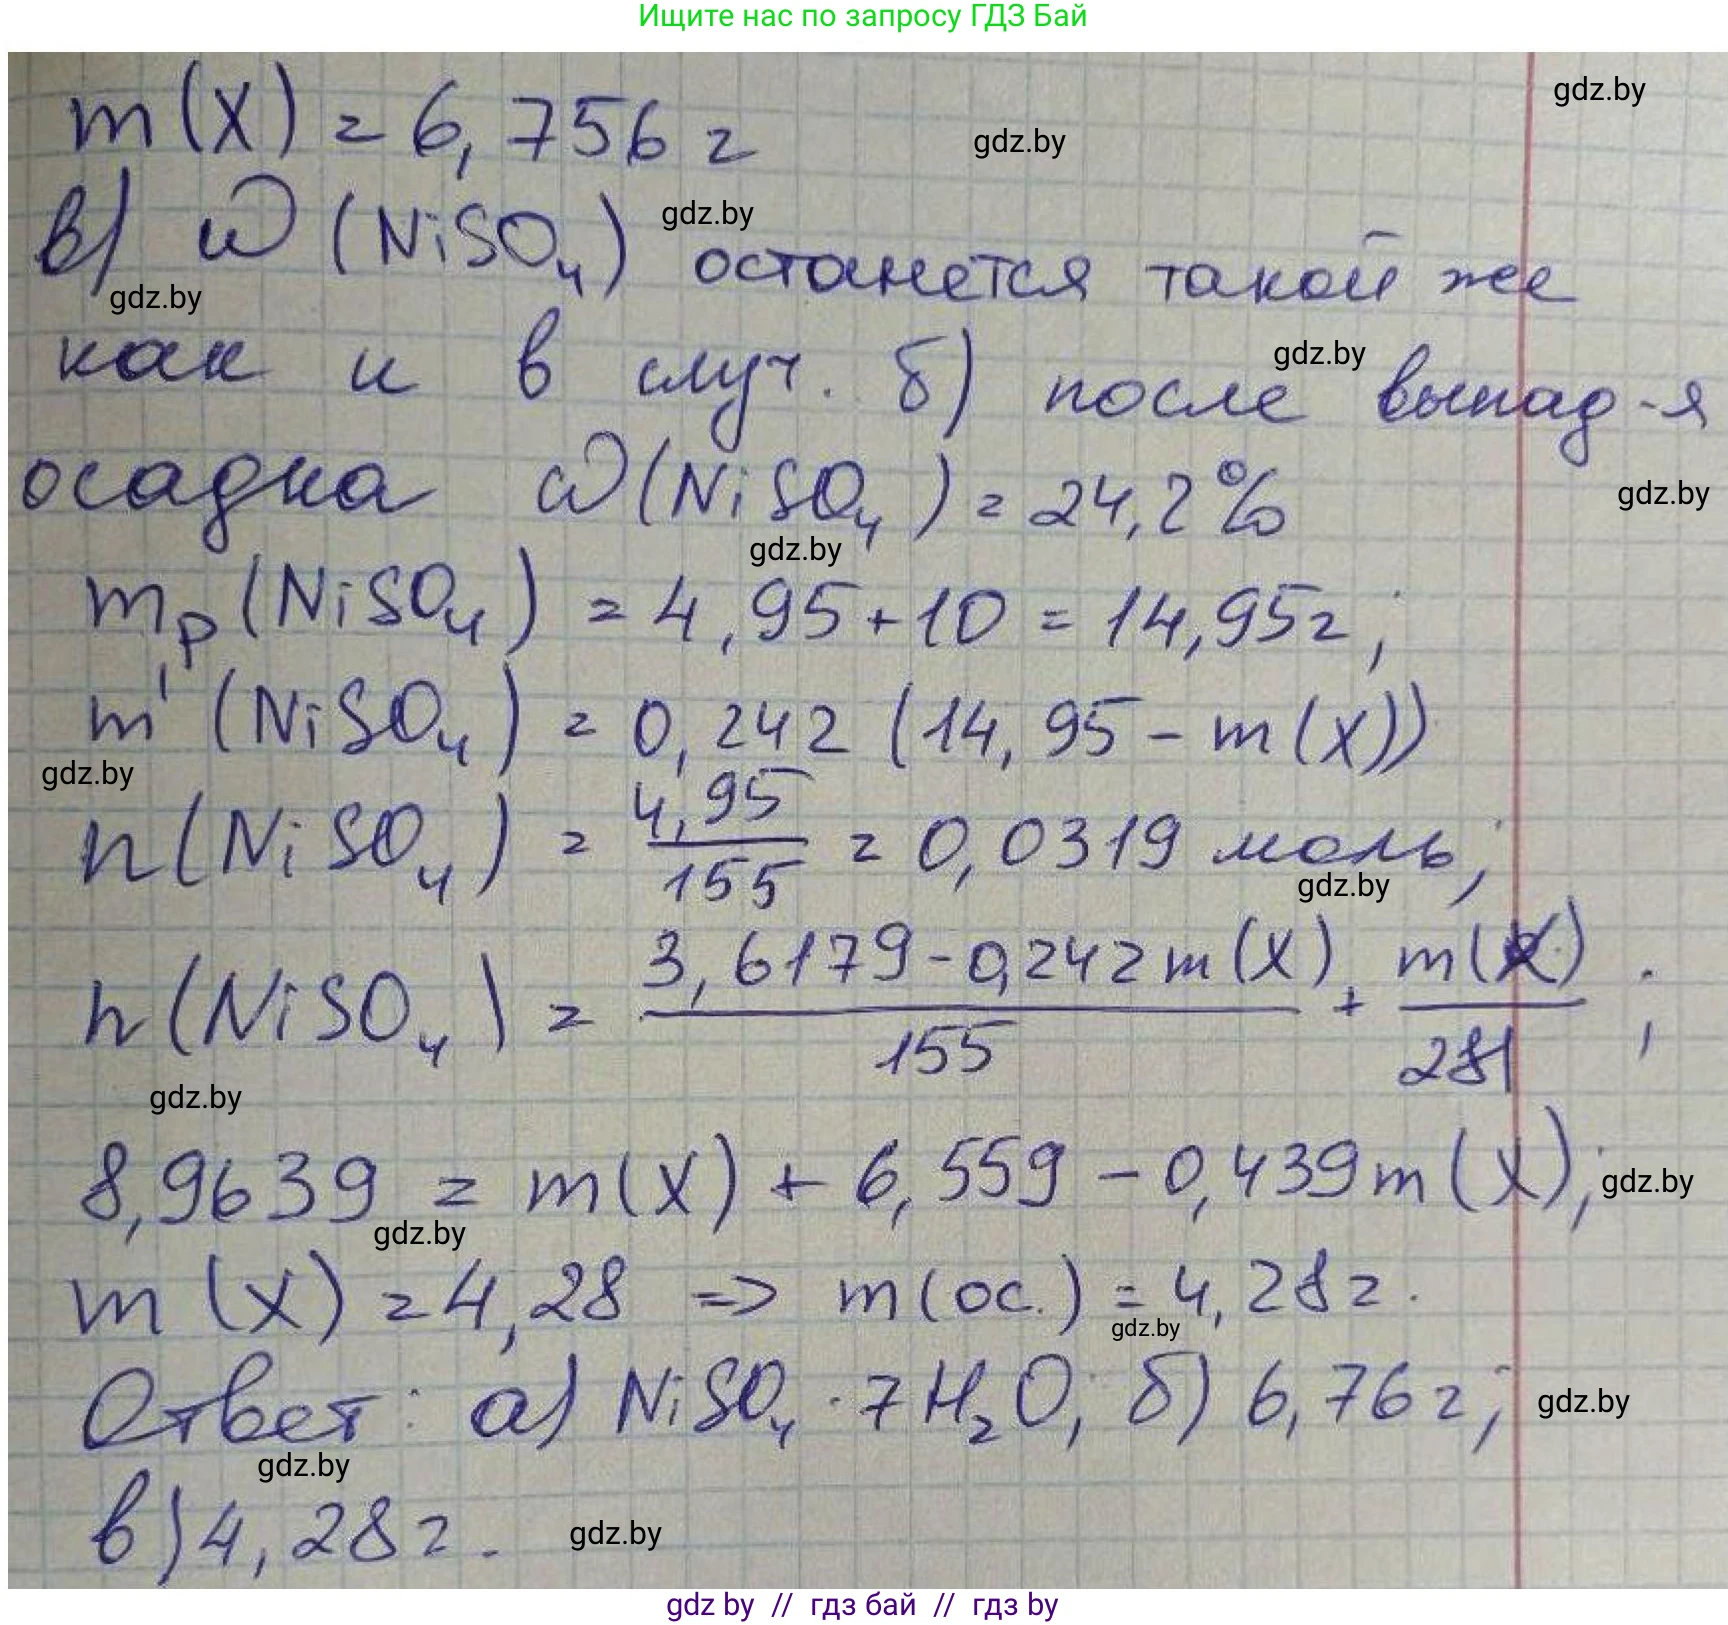 Ищите нас по запросу ГДЗ Бай
gdz.by
m(X) = 6,756 г
gdz.by
в) ω (NiSO₄) останется такой же
gdz.by
gdz.by
как и в случ. б) после выпад-я
gdz.by
осадка ω(NiSO₄) = 24,2%
gdz.by
gdz.by
mр(NiSO₄) = 4,95 + 10 = 14,95г;
m'(NiSO₄) = 0,242 (14,95 - m(X))
gdz.by
n(NiSO₄) = 4,95/155 = 0,0319 моль;
gdz.by
n(NiSO₄) = 3,6179-0,242m(X)/155 + m(X)/281;
gdz.by
8,9639 = m(X) + 6,559 - 0,439m(X);
gdz.by
gdz.by
m(X) = 4,28 => m(ос.) = 4,28г.
gdz.by
Ответ: а) NiSO₄·7H₂O; б) 6,76г;
gdz.by
gdz.by
в) 4,28г.
gdz.by
gdz by // гдз бай // гдз by